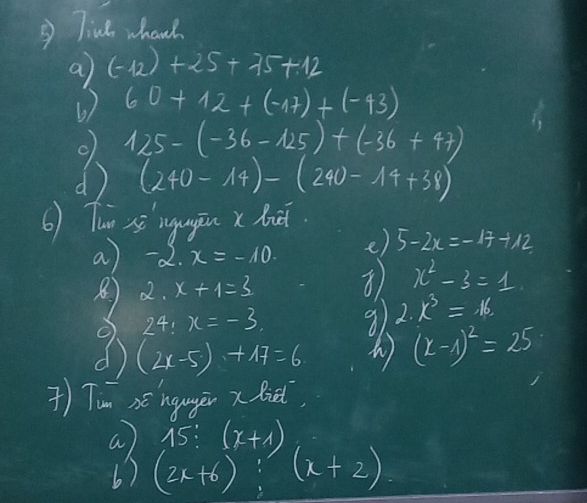 5) Tính nhanh
a) (-12) + 25 + 75 + 12
b) 60 + 12 + (-17) + (-43)
c) 125 - (-36 - 125) + (-36 + 47)
d) (240 - 14) - (240 - 14 + 38)
6) Tìm số nguyên x biết.
a) -2. x = -10.
b) 2. x + 1 = 3
c) 24: x = -3.
d) (2x - 5) + 17 = 6
e) 5 - 2x = -17 + 12
f) x² - 3 = 1
g) 2. x³ = 16
h) (x - 1)² = 25
7) Tìm số nguyên x biết,
a) 15 ⋮ (x + 1)
b) (2x + 6) ⋮ (x + 2).